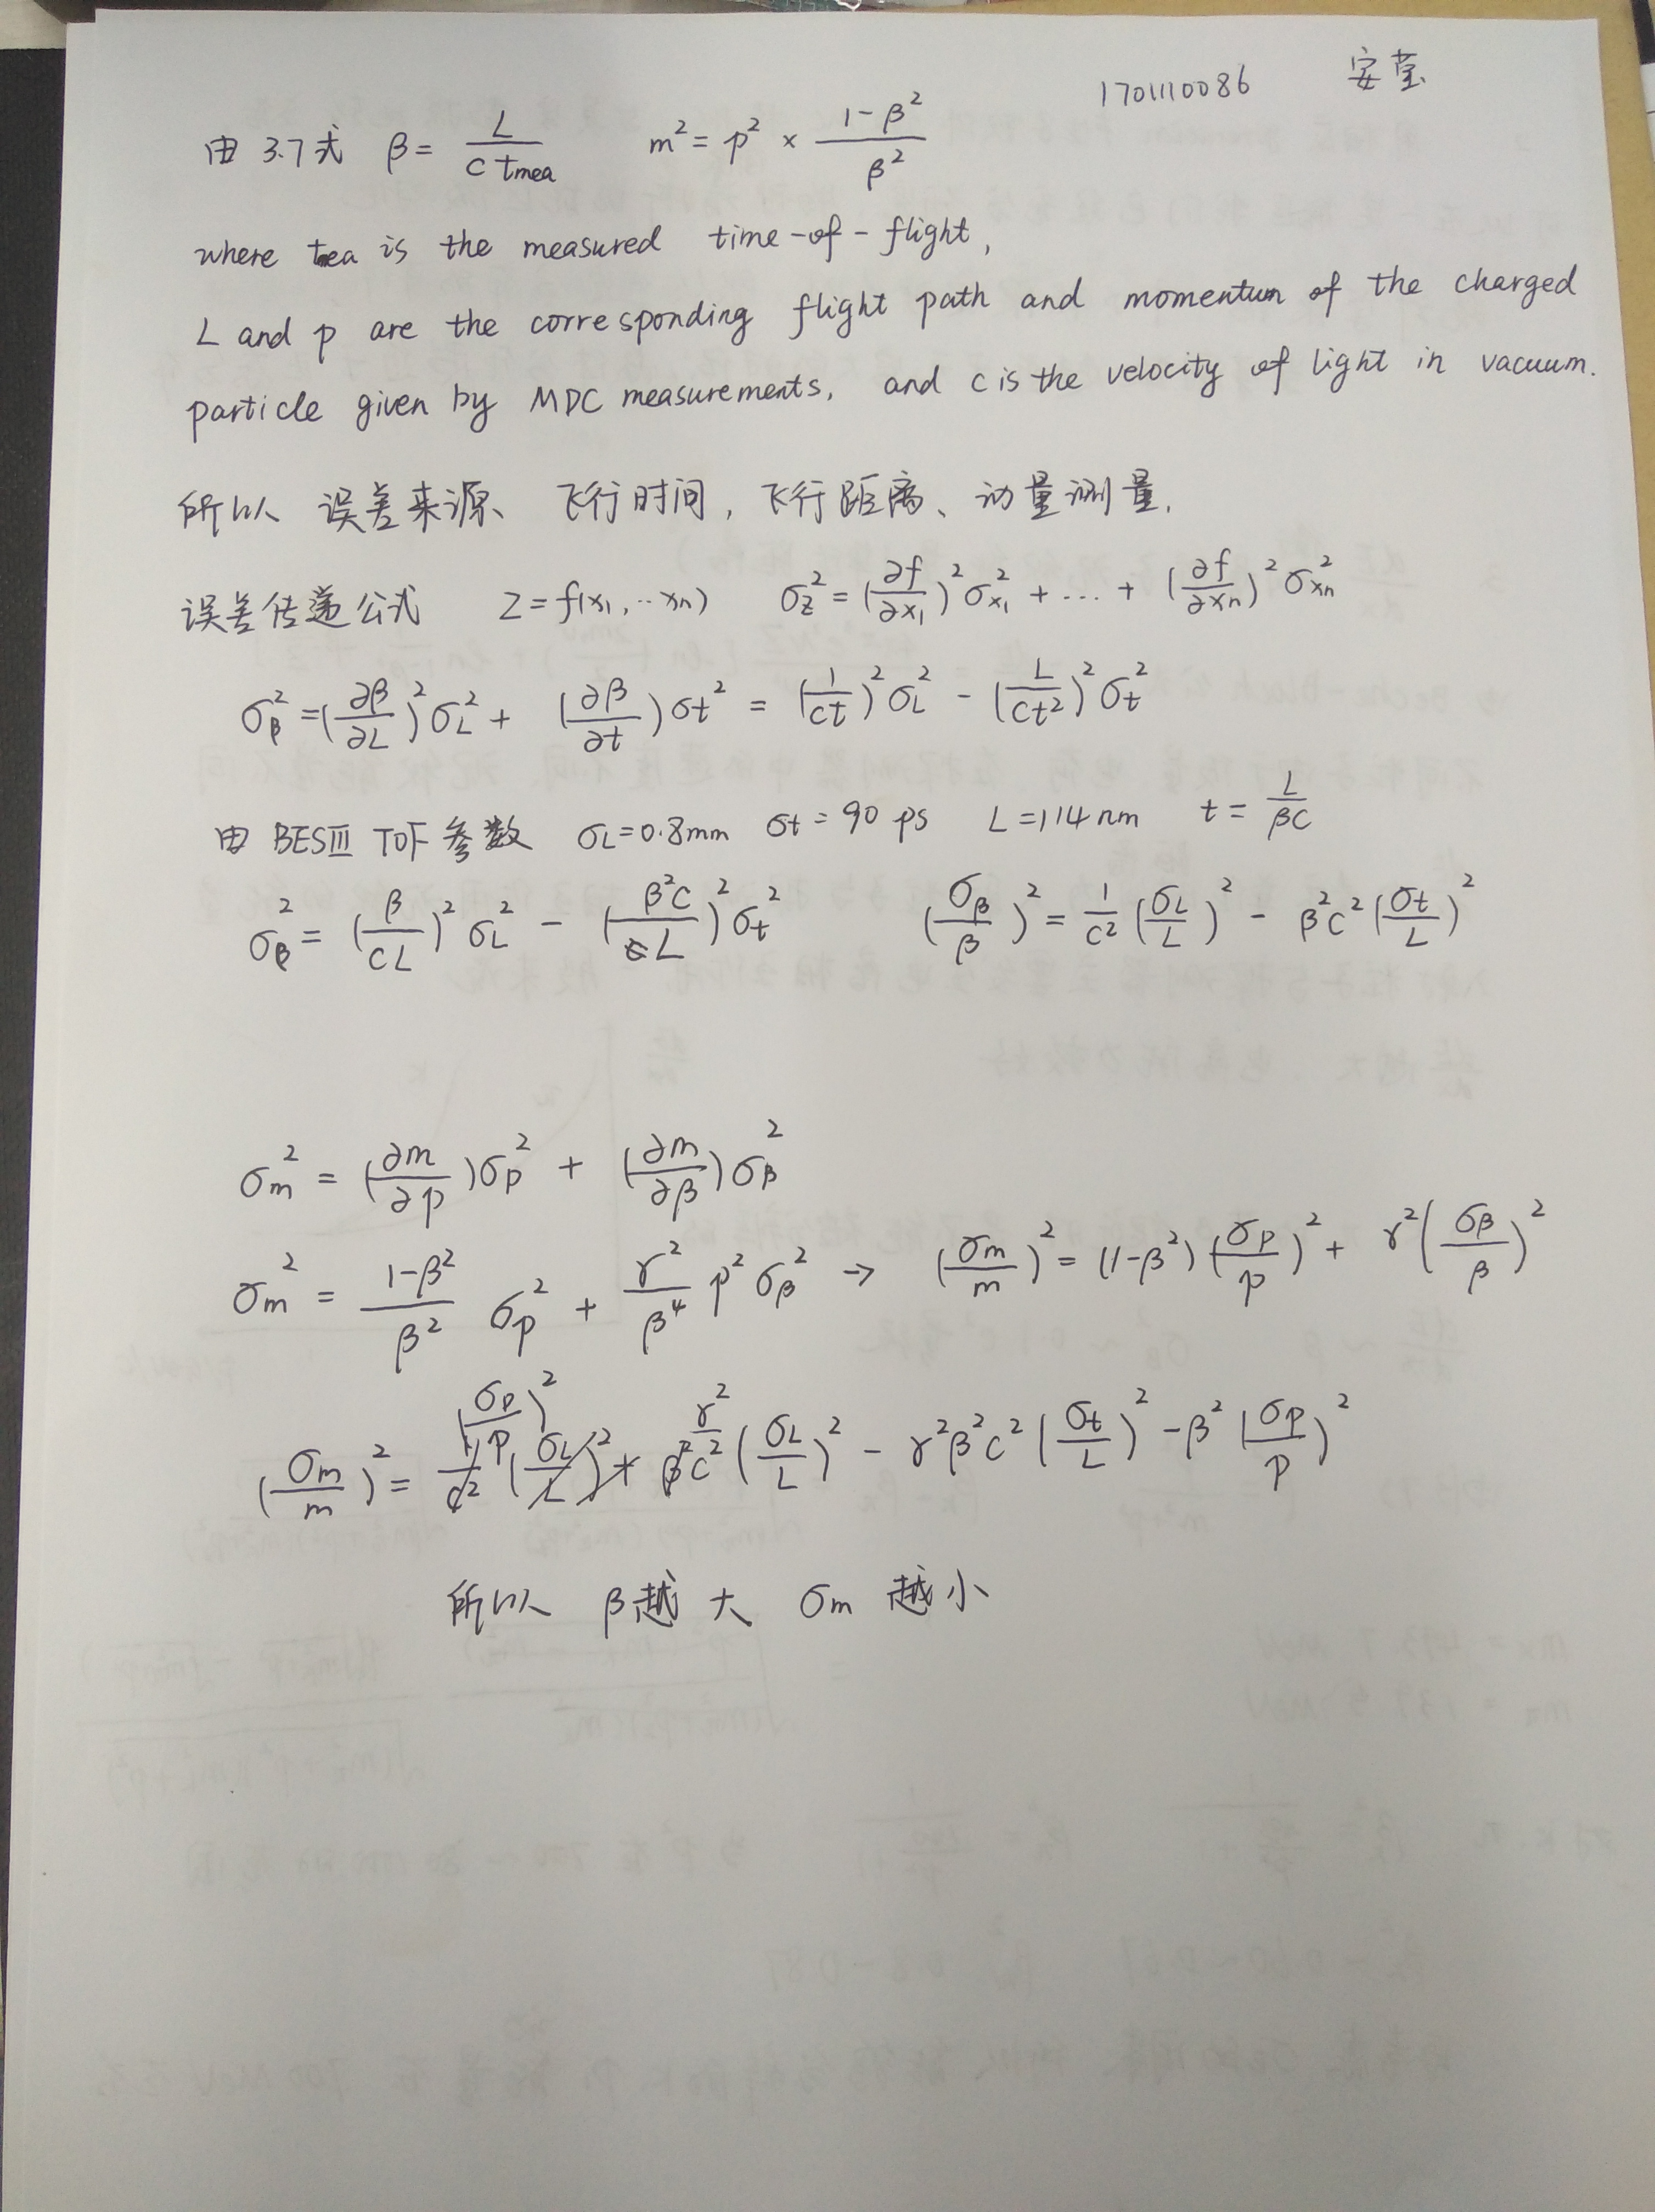 1701110086 安莹
由 3.7式 β = L / (c tmea) m² = p² × (1-β²) / β²
where tea is the measured time-of-flight,
L and p are the corresponding flight path and momentum of the charged
particle given by MDC measurements, and c is the velocity of light in vacuum.
所以 误差来源、飞行时间, 飞行距离、动量测量.
误差传递公式 Z = f(x₁, ⋯ xₙ) σz² = (∂f/∂x₁)² σx₁² + ... + (∂f/∂xn)² σxn²
σβ² = (∂β/∂L)² σL² + (∂β/∂t) σt² = (1/ct)² σL² - (L/ct²)² σt²
由 BESIII TOF 参数 σL = 0.8mm σt = 90 ps L = 114 mm t = L/βc
σβ² = (β/cL)² σL² - (β²c/L)² σt² (σβ/β)² = 1/c² (σL/L)² - β²c² (σt/L)²
σm² = (∂m/∂p) σp² + (∂m/∂β) σβ²
σm² = (1-β²)/β² σp² + γ²/β⁴ p² σβ² → (σm/m)² = (1-β²) (σp/p)² + γ² (σβ/β)²
(σm/m)² = (σp/p)² + γ²/β²c² (σL/L)² - γ²β²c² (σt/L)² - β² (σp/p)²
所以 β越大 σm 越小